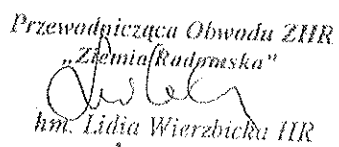 Przewodnicząca Obwodu ZHR
„Ziemia Radomska"
hm. Lidia Wierzbicka HR